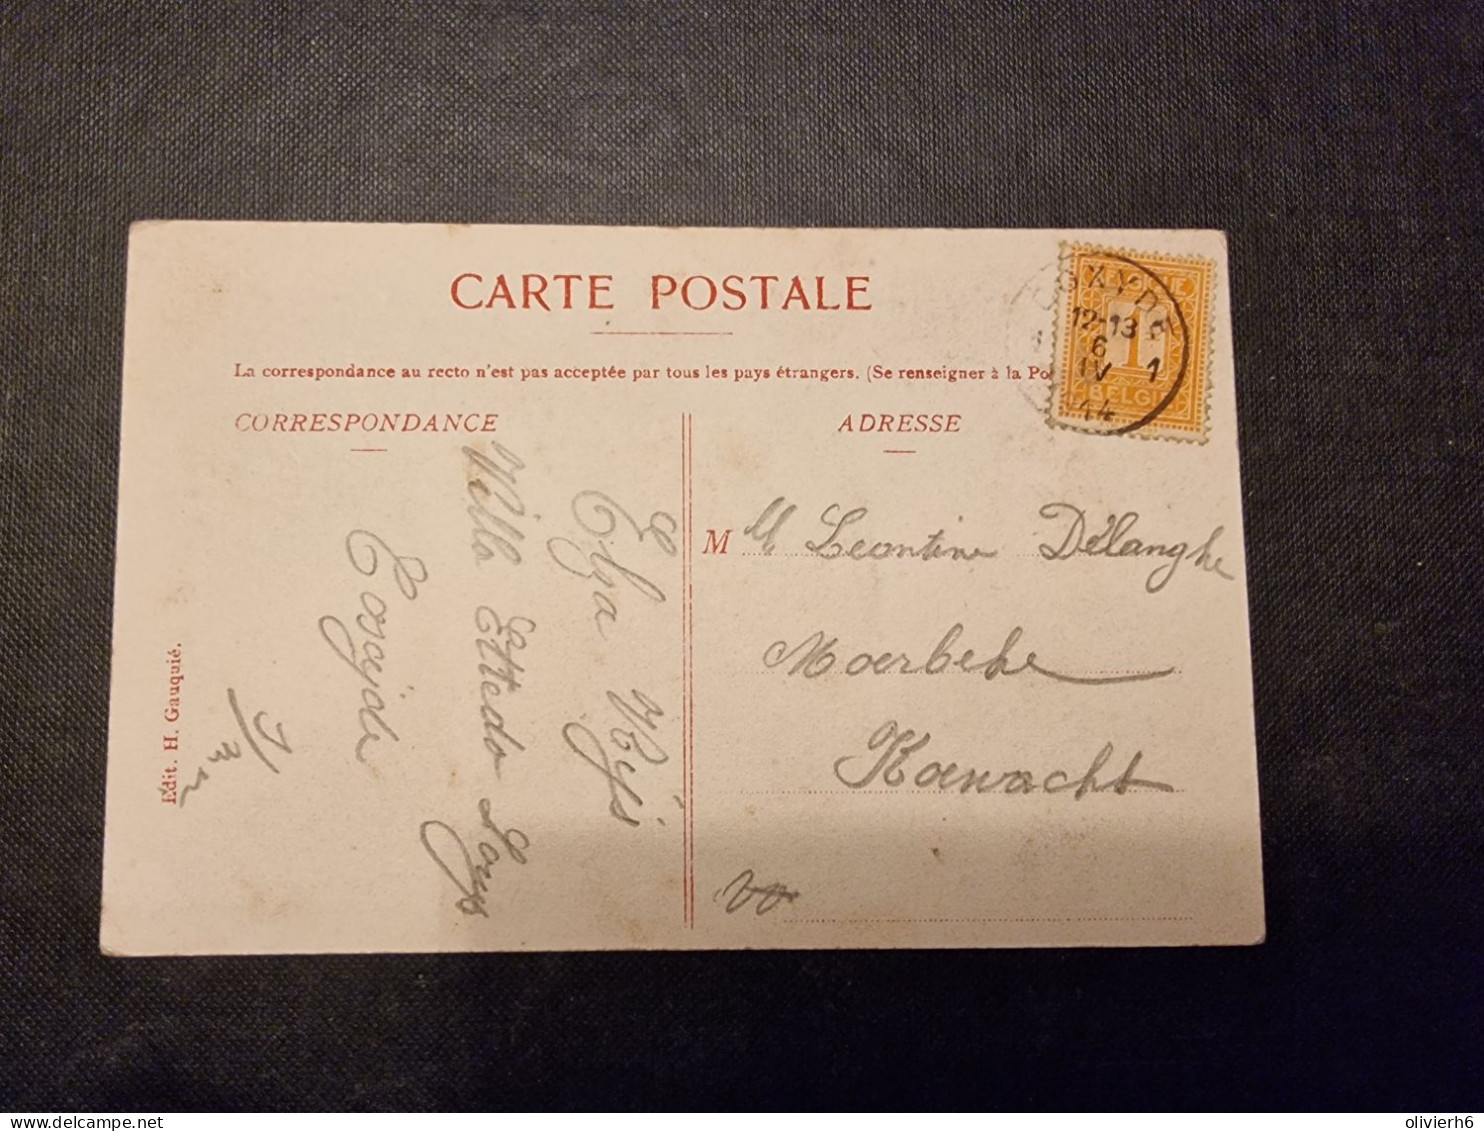 CARTE POSTALE
La correspondance au recto n'est pas acceptée par tous les pays étrangers. (Se renseigner à la Po
CORRESPONDANCE
ADRESSE
OXYDE
12-13
6
IV 1
14
1
BELGI
Elza
Villa
Coxyde
M
Leontine Délanghe
Moerbeke
Koewacht
Edit. H. Gauquié.
olivierh6